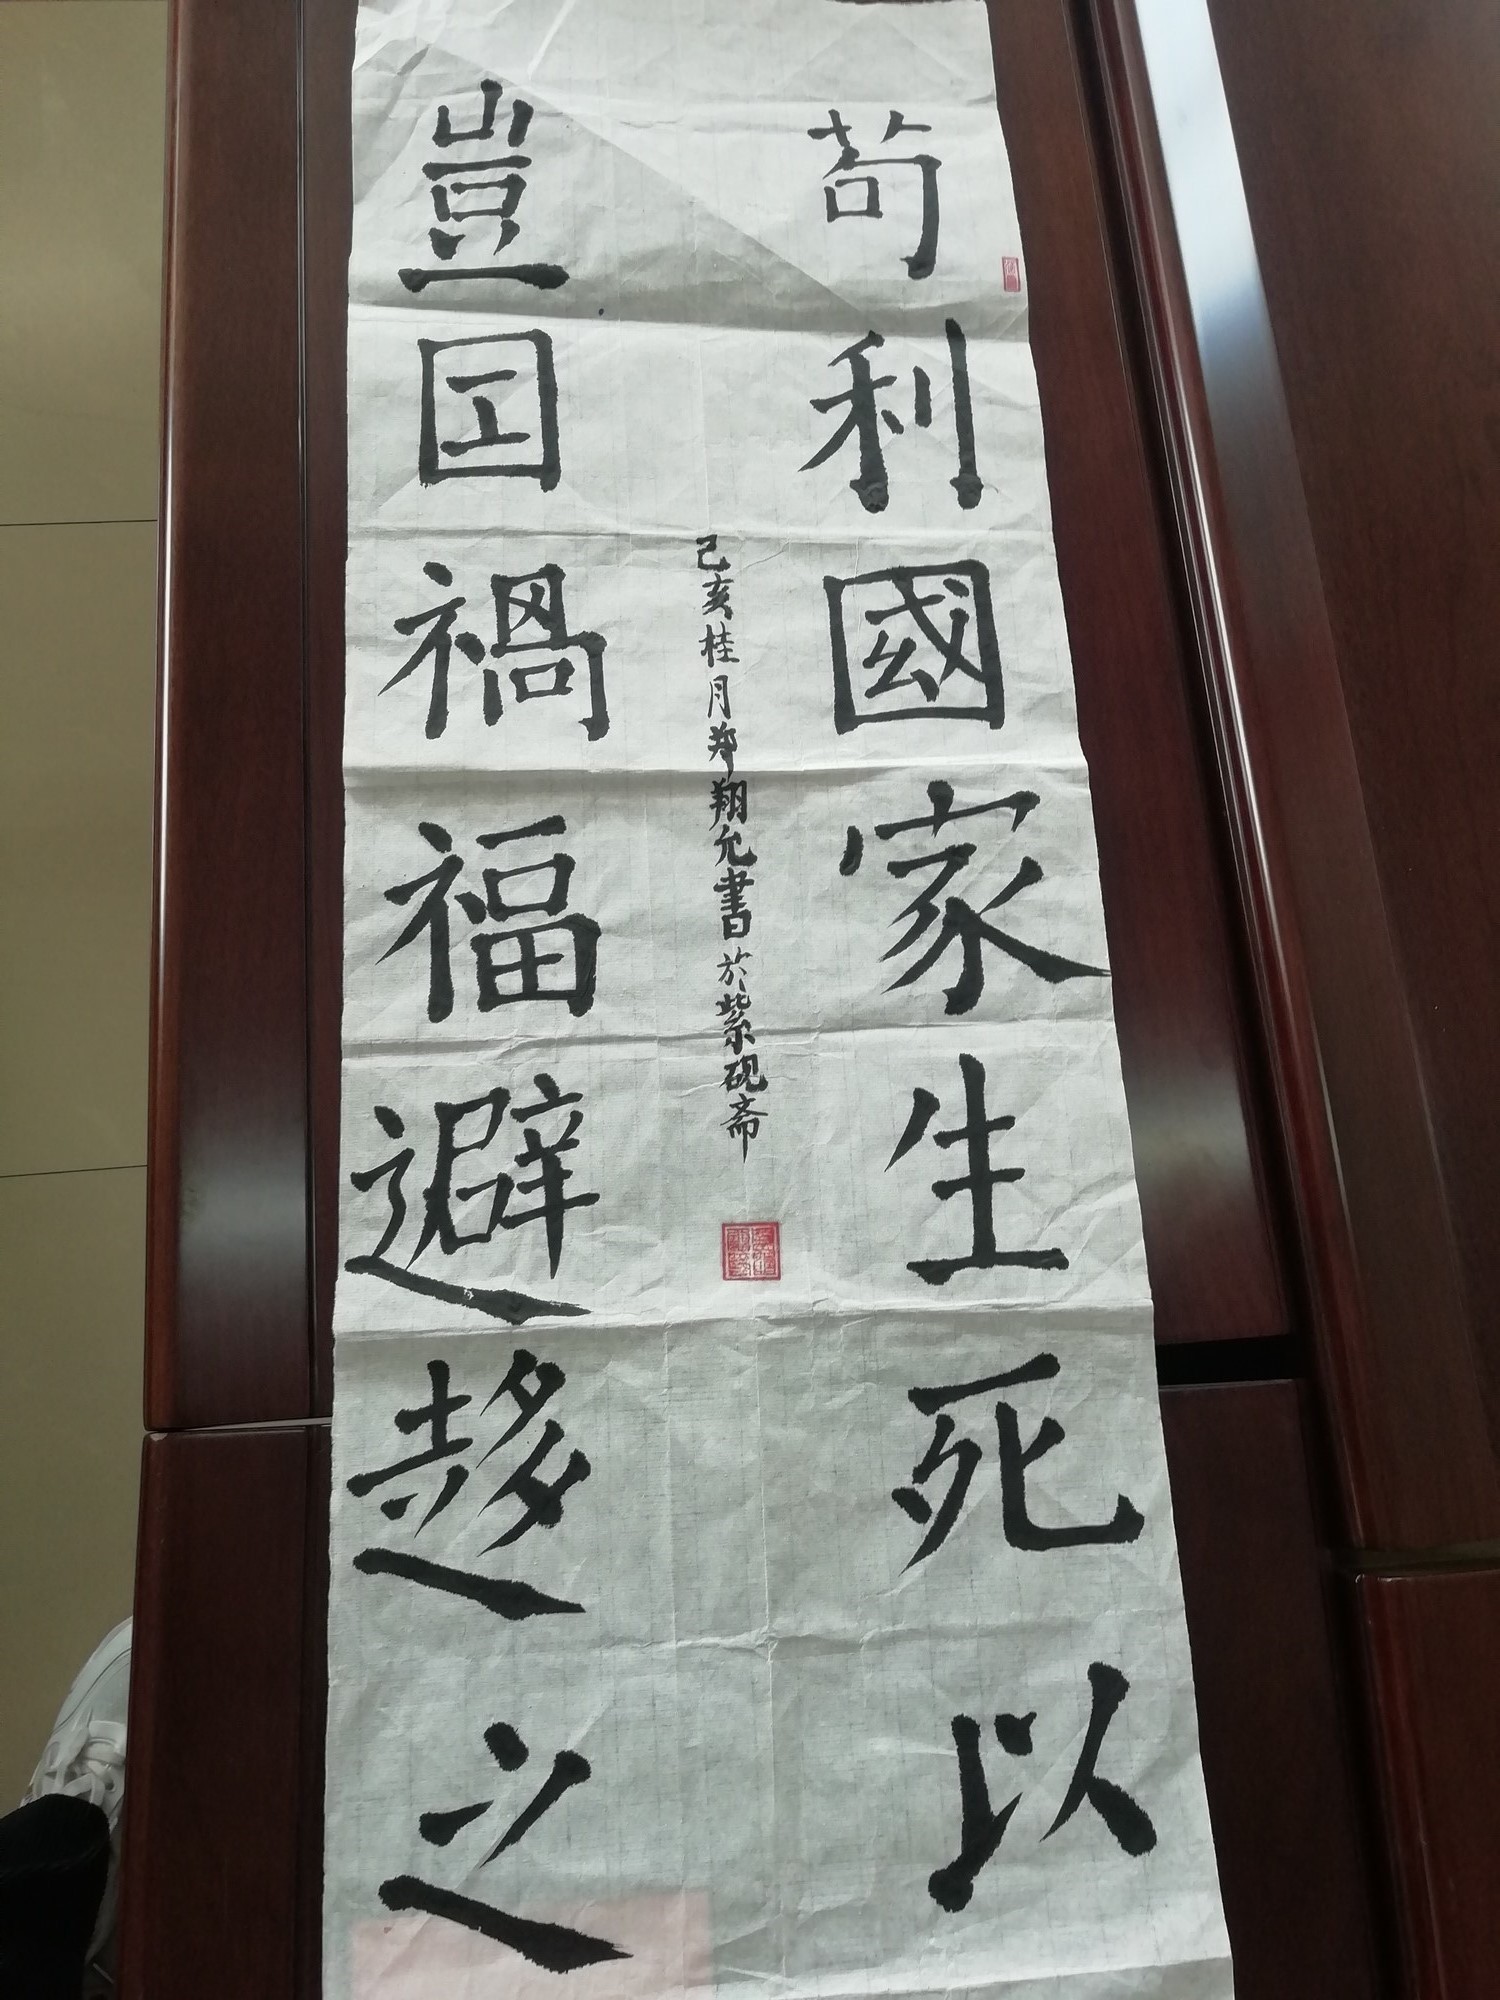 苟利國家生死以
豈因禍福避趍之
己亥桂月郑翔允書於紫砚斋